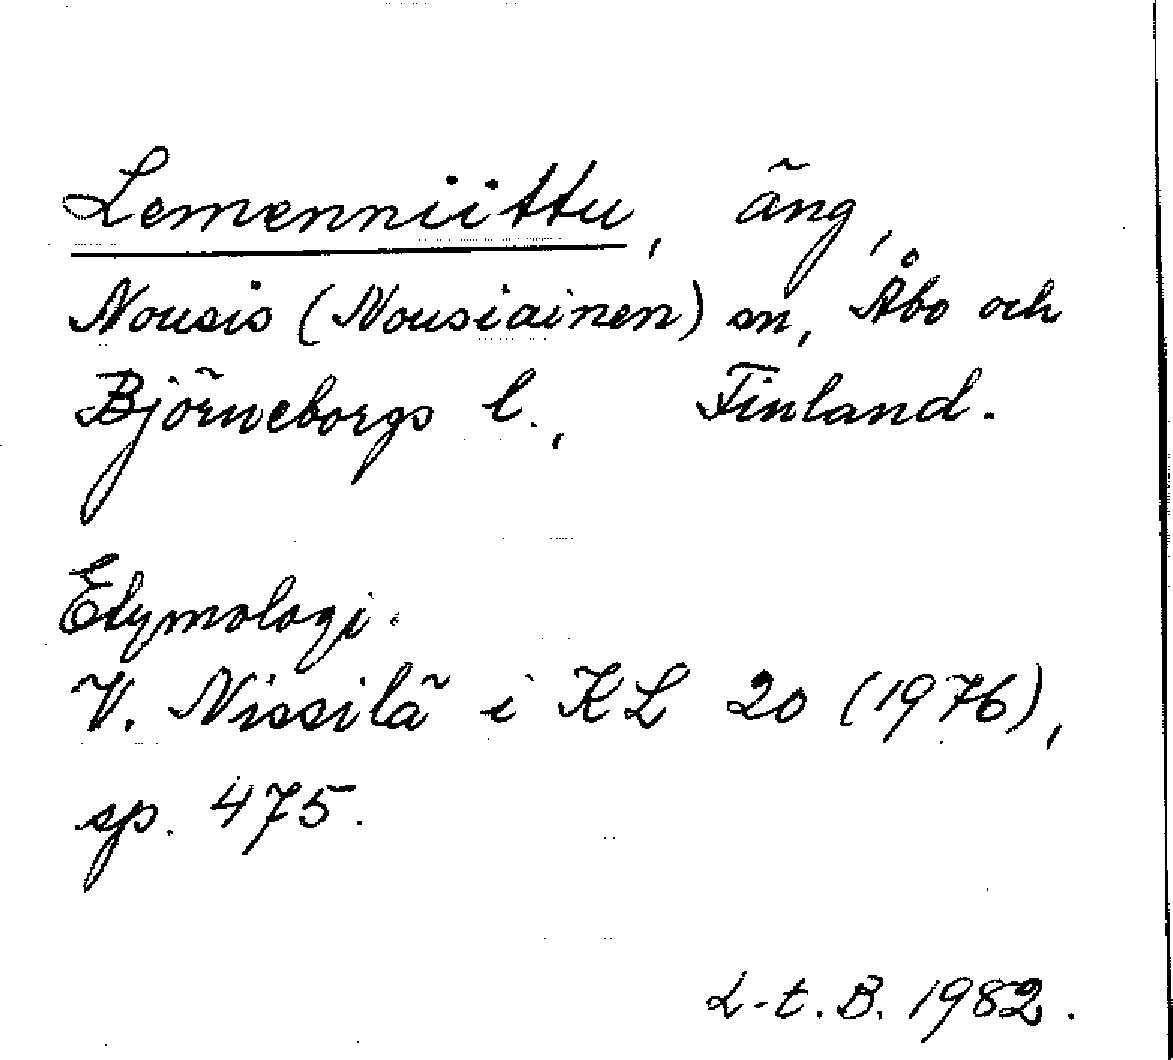 Lemenniittu, äng,
Nousis (Nousiainen) sn, Åbo och
Björneborgs l., Finland.
Etymologi.
V. Nissilä i KL 20 (1976),
sp. 475.
L-t. B. 1982.